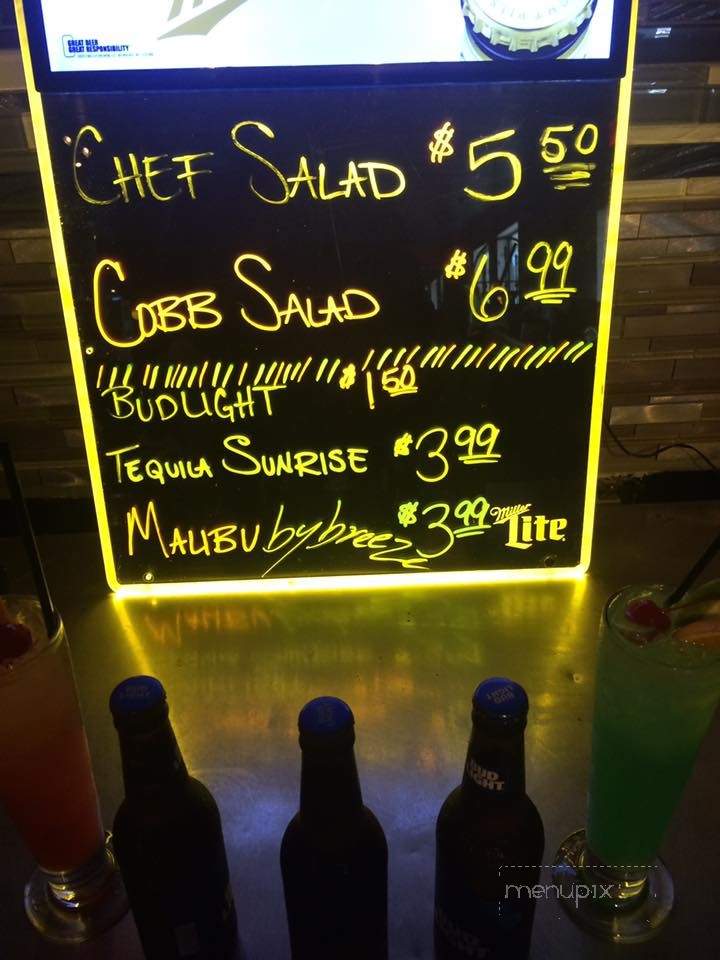 GREAT BEER
GREAT RESPONSIBILITY
CHEF SALAD $5 50
COBB SALAD $6 99
BUD LIGHT $1 50
TEQUILA SUNRISE $3 99
MALIBU by breeze $3 99
Miller
Lite
BUD LIGHT
BUD
LIGHT
menupix